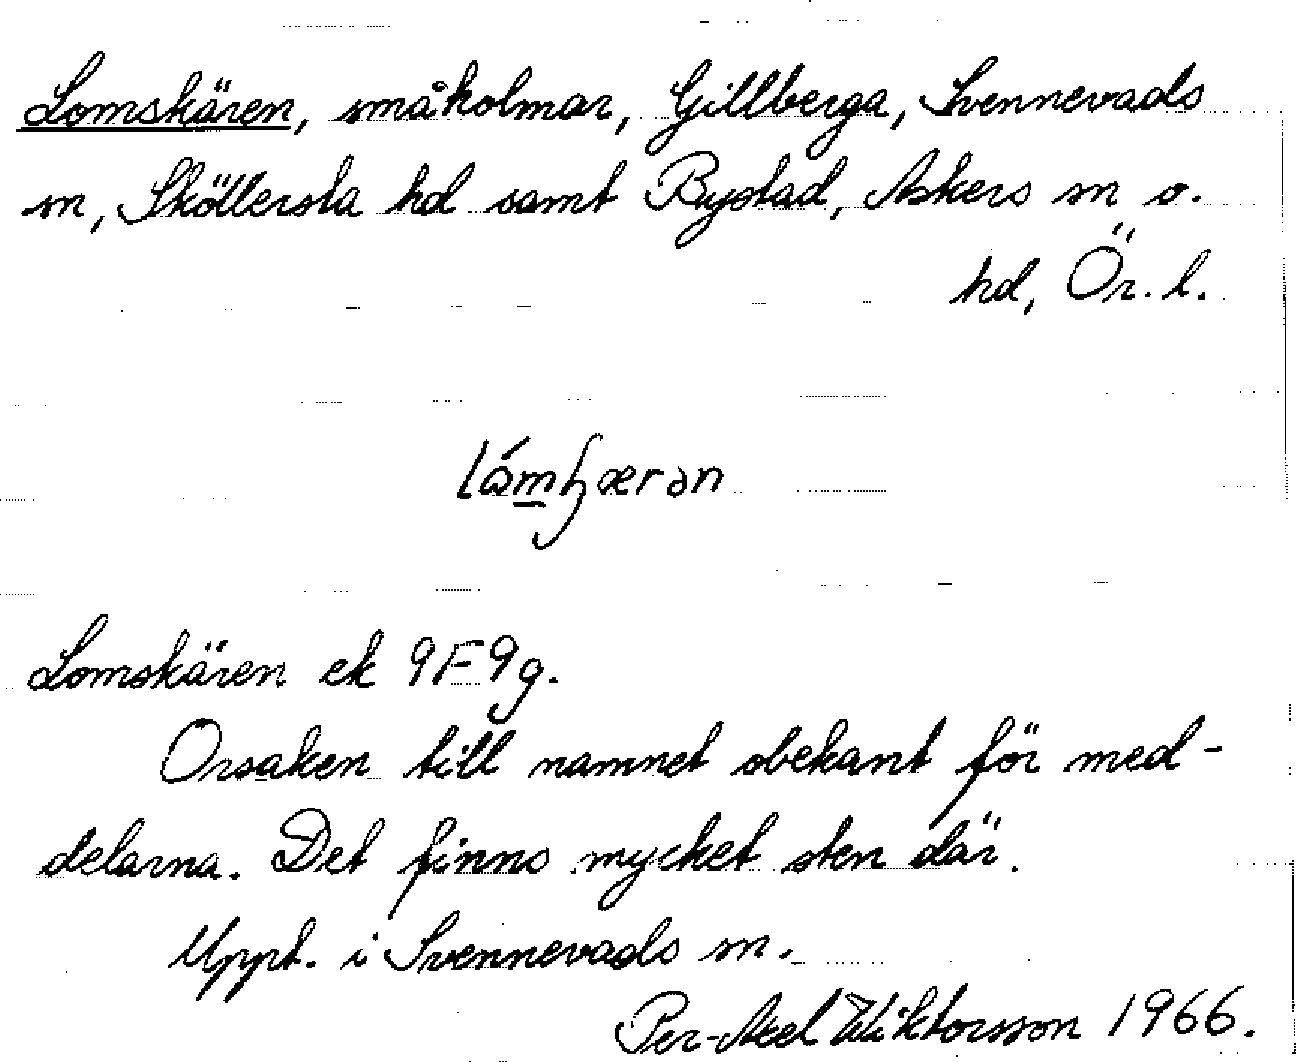 Lomskären, småholmar, Gillberga, Svennevads
sn, Sköllersta hd samt Bystad, Askers sn o.
hd, Ör. l.
lómꞕærən
Lomskären ek 9F9g.
Orsaken till namnet obekant för med-
delarna. Det finns mycket sten där.
Uppt. i Svennevads sn.
Per-Axel Wiktorsson 1966.